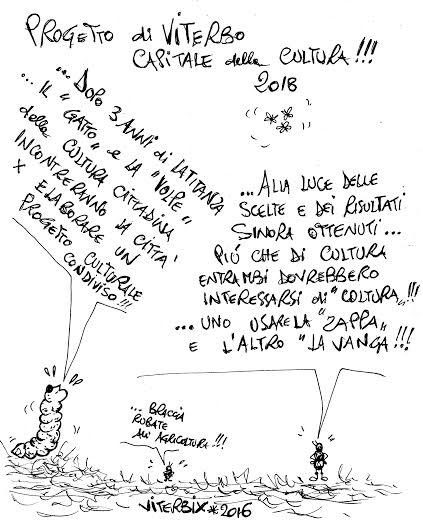 PROGETTO di VITERBO
CAPITALE della CULTURA!!!
2018
... DOPO 3 ANNI di LATITANZA
... IL "GATTO" e LA "VOLPE"
della CULTURA CITTADINA
INCONTRERANNO LA CITTA'
x ELABORARE UN
PROGETTO CULTURALE
CONDIVISO!!!
... ALLA LUCE DELLE
SCELTE E DEI RISULTATI
SINORA OTTENUTI...
PIÚ CHE DI CULTURA
ENTRAMBI DOVREBBERO
INTERESSARSI di "COLTURA"!!!
... UNO USARE LA "ZAPPA"
E L'ALTRO "LA VANGA"!!!
... BRACCIA
RUBATE
ALL'AGRICOLTURA!!!
VITERBIX*2016